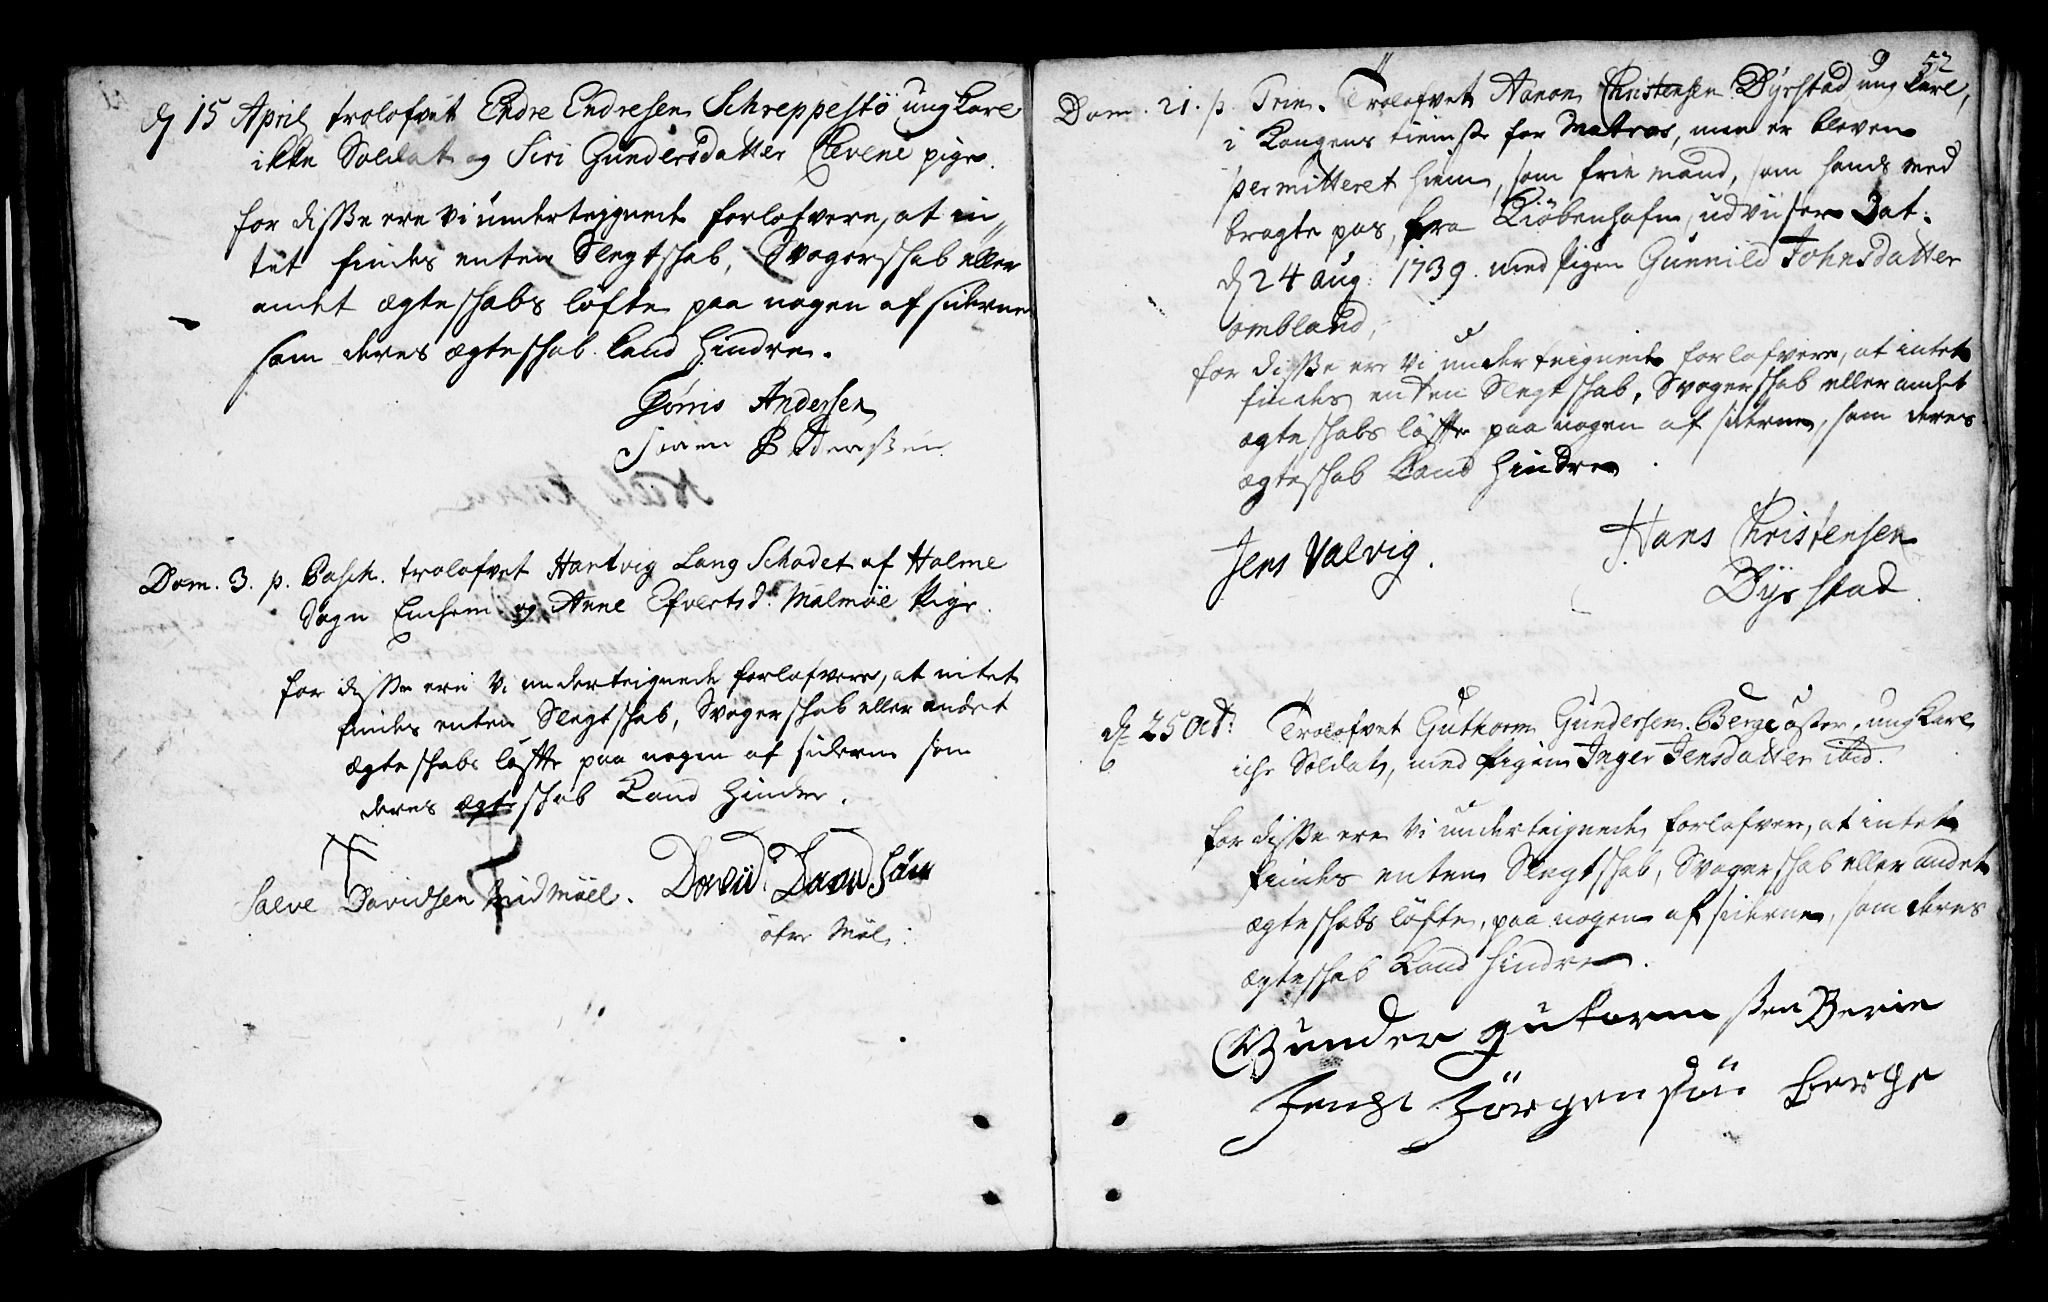 d 15 April trolofvet Endre Endresen Schreppestø ungkarl
ikke Soldat og Siri Gundersdatter Clevene pige.
for disse ere vi underteignede forlofvere, at in„
tet findes enten Slegtskab, Svogerskab eller
andet ægteskabs løfte paa nogen af siderne
som deres ægteskab kand hindre.
Tørris Andersen
Søren Pedersen
Dom. 3. p. Pasch. trolofvet Hartvig Lang Schodet af Holme
Sogn og Anne Efvertsd. Malmøe Pige.
for disse ere vi underteignede forlofvere, at intet
findes enten Slegtskab, Svogerskab eller andet
ægteskabs løffte paa nogen af siderne som
deres ægteskab kand hindre.
Salve Davidsen Indmöel. David Davidsøn
öfre Möl:
9 52
Dom. 21. p. Trin. Trolofvet Aanon Christensen Dyrstad ungkarl,
i Kongens tieniste for Matros, men er bleven
permitteret hiem, som frie mand, som hands med
bragte pas, fra Kiøbenhafn, udviiser Dat.
d 24 aug: 1739. med Pigen Gunnild Johnsdatter
Ombland,
for disse ere vi underteignede forlofvere, at intet
findes enten Slegtskab, Svogerskab eller andet
ægteskabs løffte paa nogen af siderne, som deres
ægteskab kand hindre.
Jens Valvig. Hans Christensen
Dyrstad
d 25 Oct: Trolofvet Guthorm Gundersen Berge öster, ungkarl
iche Soldat, med Pigen Inger Jensdatter ibid.
for disse ere vi underteignede forlofvere, at intet
findes enten Slegtskab, Svogerskab eller andet
ægteskabs løfte, paa nogen af siderne, som deres
ægteskab kand hindre.
Gunder gutorm ssen Berie
Jens Jörgensön berge